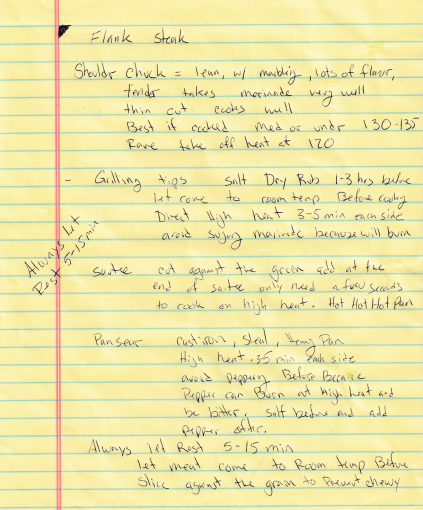 Flank Steak
Shouldr Chuck = lean, w/ marbling, lots of flavor,
tender takes marinade very well
thin cut cooks well
Best if cooked Med or undr 130-135
Rare take off heat at 120
- Grilling tips salt Dry Rub 1-3 hrs before
let come to room temp Before cooking
Direct High heat 3-5 min each side
avoid sugary marinade because will burn
Always Let
Rest 5-15 min
sautee cut against the grain add at the
end of sautee only need a few seconds
to cook on high heat. Hot Hot Hot Pan
Pan sear cast iron, Steal, Heavy Pan
High heat. 3-5 min each side
avoid peppering Before
Pepper can Burn at High heat and
be bitter. salt before and add
pepper after.
Always let Rest 5-15 min
let meat come to Room temp Before
Slice against the grain to Prevent chewy